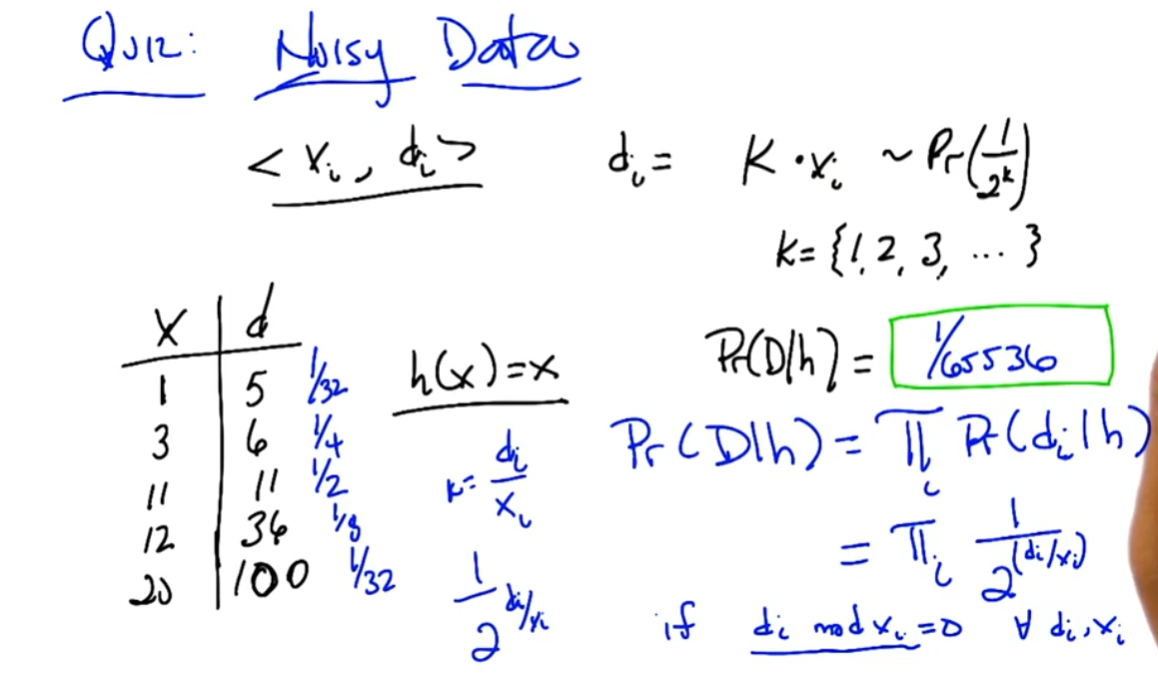 Quiz: Noisy Data
< xᵢ, dᵢ > dᵢ = k · xᵢ ~ Pr(1/2ᵏ)
k = {1, 2, 3, ... }
x | d
1 5 1/32
3 6 1/4
11 11 1/2
12 36 1/8
20 100 1/32
h(x) = x
k = dᵢ/xᵢ
1/2^(dᵢ/xᵢ)
Pr(D|h) = 1/65536
Pr(D|h) = ∏ᵢ Pr(dᵢ|h)
= ∏ᵢ 1/2^(dᵢ/xᵢ)
if dᵢ mod xᵢ = 0 ∀ dᵢ, xᵢ